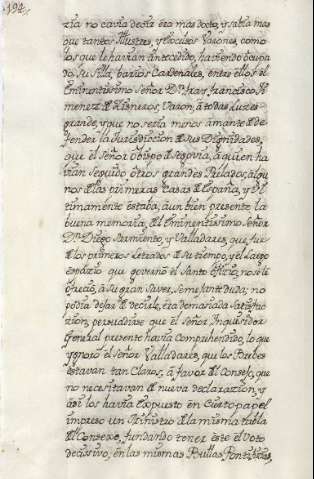 194.
ria no cavia decir era mas docto, y sabia mas
que tantos Illustres, y excelsos Varones, como
los que le havian antecedido, haviendo ocupa
do su silla, barios Cardenales, entre ellos el
Eminentisimo Señor Dn. fray francisco Xi
menez de Cisneros, Varon, à todas Luzes
grande, y que no seria menos amante de de
fender la Jurisdiccion de sus Dignidades,
que el Señor Obispo de Segovia, à quien ha
vian seguido otros grandes Prelados, algu
nos de las primeras Casas de España, y Ul
timamente estaba, aun bien presente la
buena memoria, del Eminentisimo Señor
Dn. Diego Sarmiento, y Valladares, que fue
de los primeros Letrados de su tiempo, y el Largo
espazio que governò el Santo Oficio, no se le
ofreciò, à su gran Saver, Semejante duda; no
podia dejar de decirle, era demasiada Satisfac
zion, persuadirse que el Señor Inquisidor
General presente havia Comprehendido, lo que
ygnorò el Señor Valladares, que las Bulas
estavan tan Claras, à favor del Consejo, que
no necesitavan de nueva declarazion, y
asi los havia expuesto en Cierto papel
impreso un Ministro de la misma tabla
del Consexo, fundando tener este el Voto
decissivo, en las mismas Bullas Pontificias,